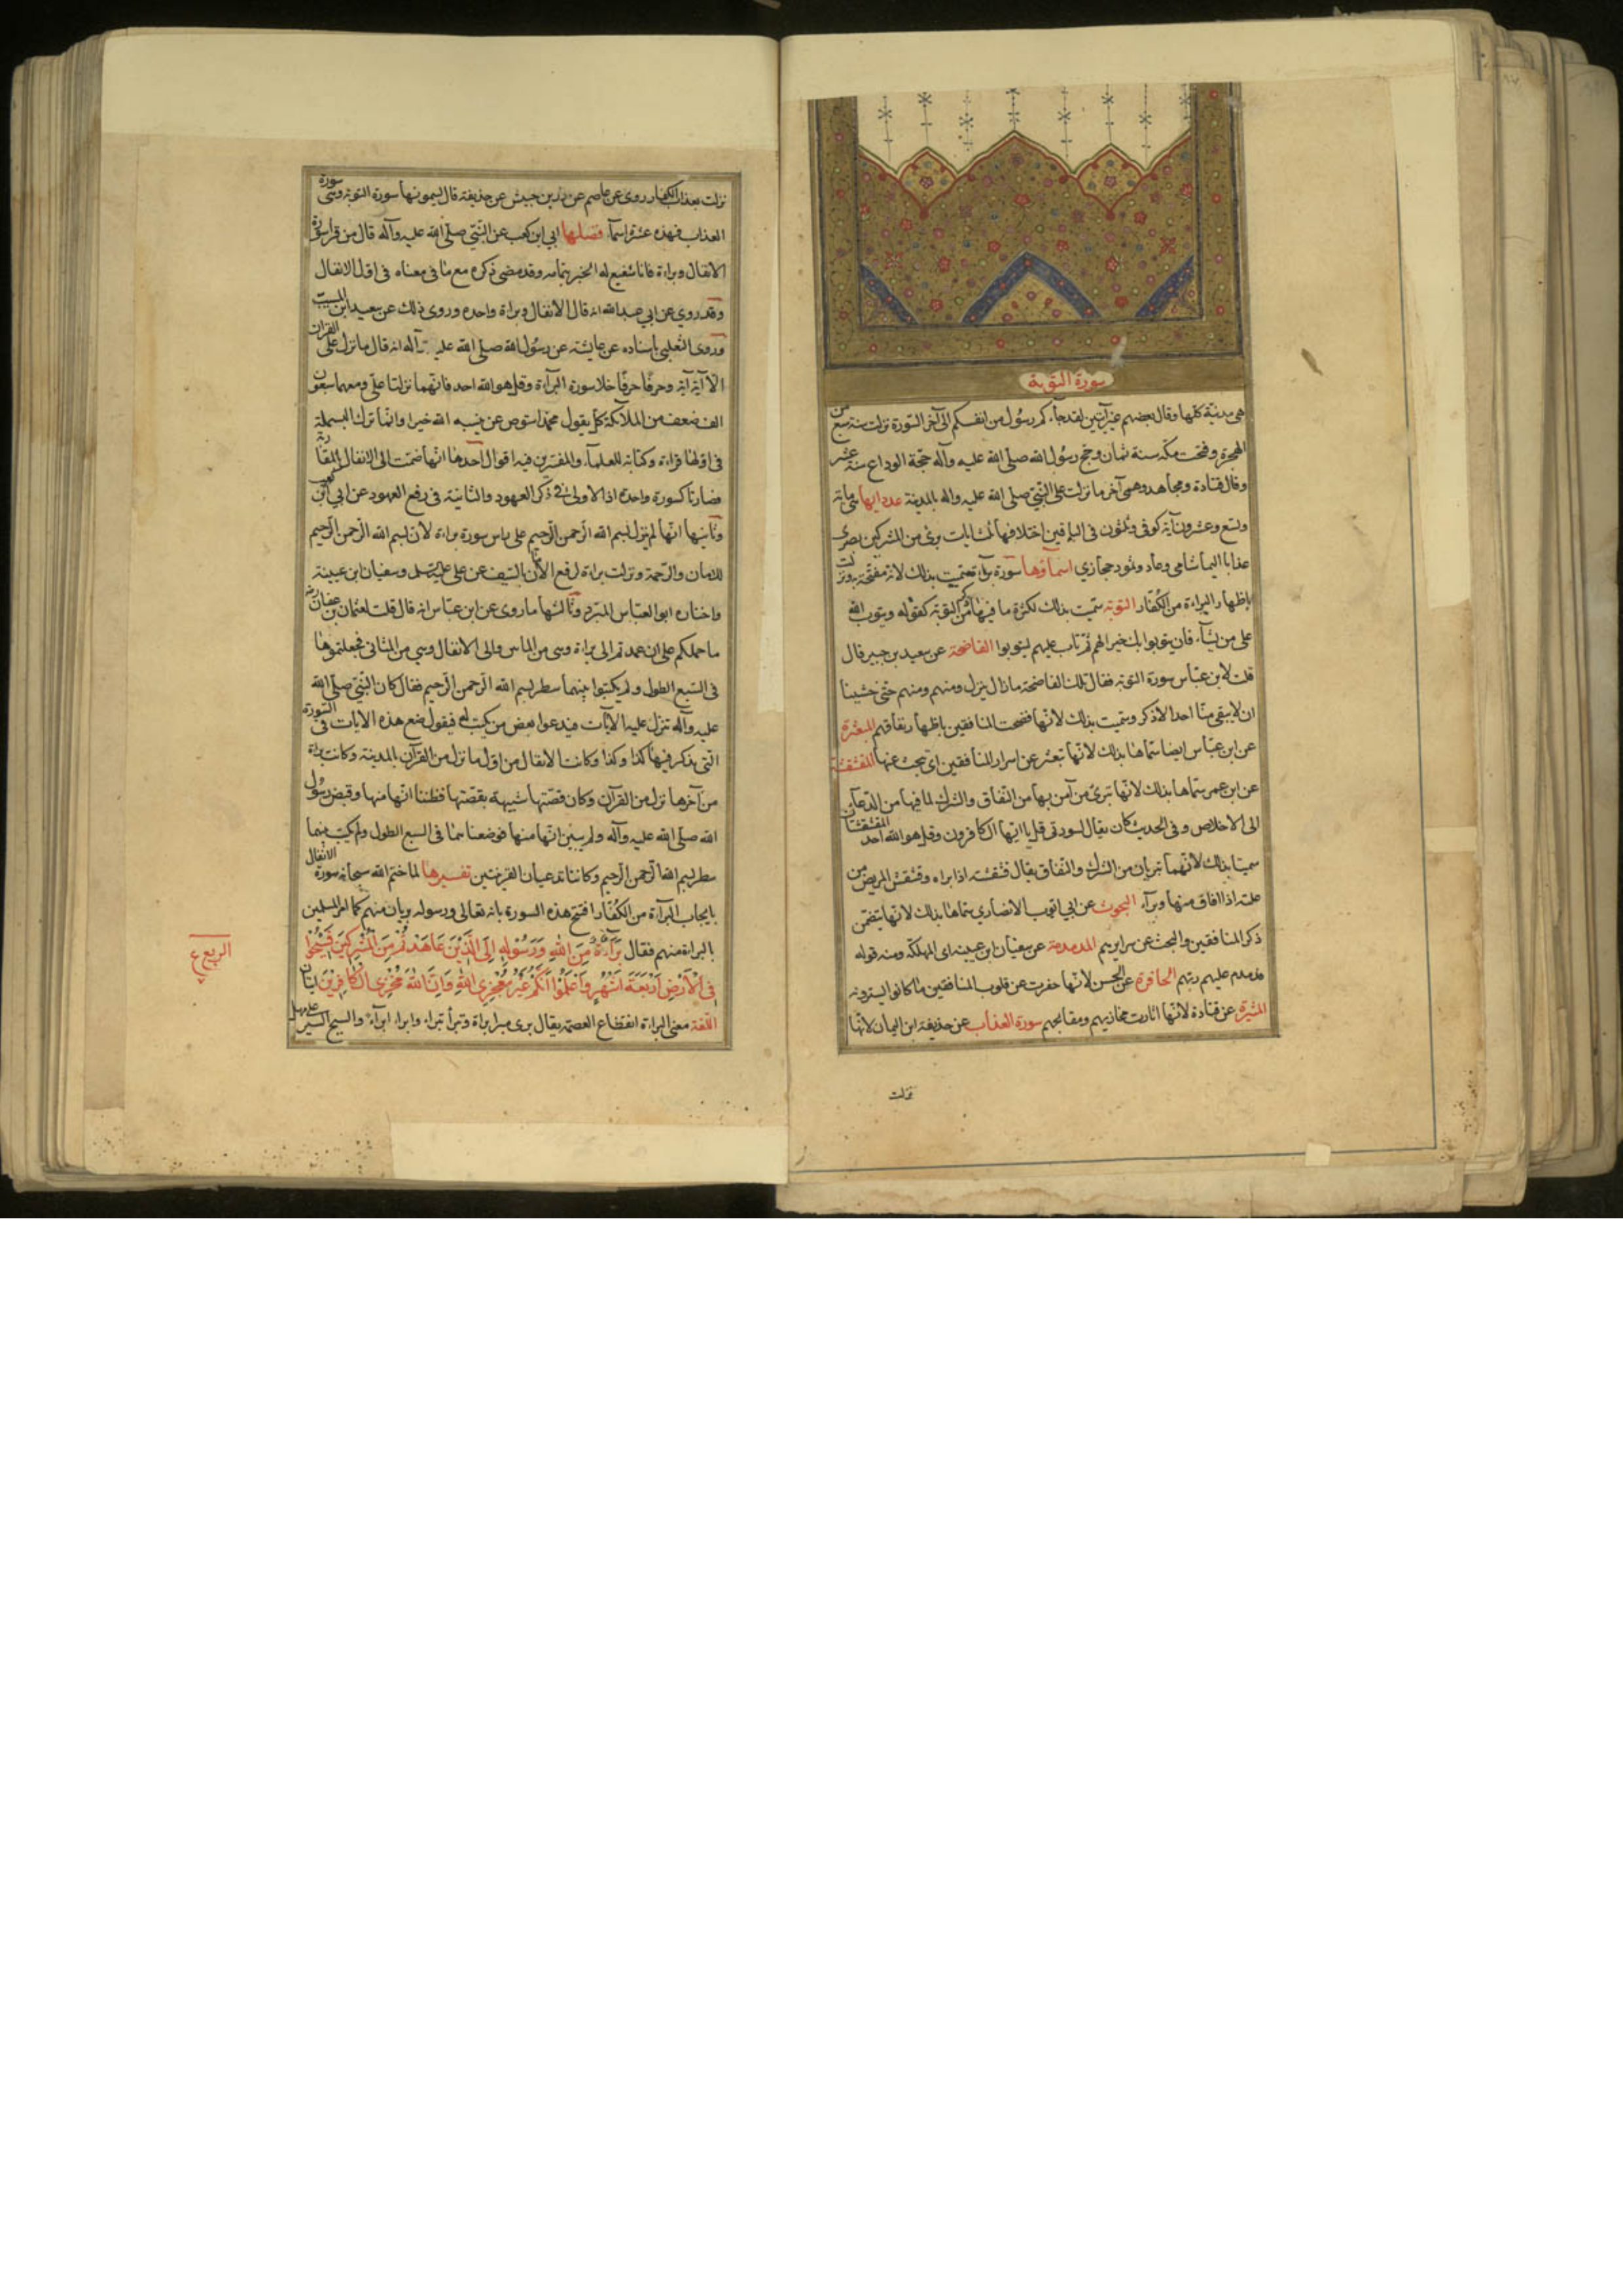 سورة التوبة
هي مدنية كلها وقال بعضهم غير آيتين لقد جاءكم رسول من انفسكم الى آخر السورة نزلت سنة تسع من
الهجرة وفتحت مكة سنة ثمان وحج رسول الله صلى الله عليه وآله حجة الوداع سنة عشر
وقال قتادة ومجاهد وهي آخر ما نزلت على النبي صلى الله عليه واله بالمدينة عدد ايها مائة
وتسع وعشرون آية كوفي وثلثون في الباقين اختلافها ثلث ايات برئ من المشركين بصرى
عذابا اليما شامي وعاد وثمود حجازي اسماؤها سورة براءة سميت بذلك لانها مفتتحة ونزلت
باظهار البراءة من الكفار التوبة سميت بذلك لكثرة ما فيها من التوبة كقوله ويتوب الله
على من يشآء فان يتوبوا يك خيرا لهم ثم تاب عليهم ليتوبوا الفاضحة عن سعيد بن جبير قال
قلت لابن عباس سورة التوبة فقال تلك الفاضحة ما زال ينزل ومنهم ومنهم حتى خشينا
ان لا يبقى منا احد الا ذكر وسميت بذلك لانها فضحت المنافقين باظهار نفاقهم المبعثرة
عن ابن عباس ايضا سماها بذلك لانها تبعثر عن اسرار المنافقين اى تبحث عنها المقشقشة
عن ابن عمر سماها بذلك لانها تبرئ من آمن بها من النفاق والشرك لما فيها من الدعآء
الى الاخلاص وفي الحديث كان يقال لسورتي قل يا ايها الكافرون وقل هو الله احد المقشقشتان
سميتا بذلك لانهما تبريان من الشرك والنفاق يقال قشقشه اذا براه وقشقش المريض من
علته اذا افاق منها وبرآء البحوث عن ابي ايوب الانصاري سماها بذلك لانها تتضمن
ذكر المنافقين والبحث عن سرايرهم المدمدمة عن سفيان ابن عيينه اى المهلكة ومنه قوله
فدمدم عليهم ربهم الحافرة عن الحسن لانها حفرت عن قلوب المنافقين ما كانوا يسترونه
المثيرة عن قتادة لانها اثارت مخازيهم ومقابحهم سورة العذاب عن حذيفة ابن اليمان لانها
نزلت
نزلت بعذاب الكفار روى عن عاصم عن زر بن حبيش عن حذيفة قال يسمونها سورة التوبة وهي سورة
العذاب فهذه عشرة اسمآء فضلها ابي ابن كعب عن النبي صلى الله عليه وآله قال من قرا سورة
الانفال وبراءة فانا شفيع له الخبر بتمامه وقد مضى ذكره مع ما في معناه في اول الانفال
وقد روي عن ابي عبد الله انه قال الانفال وبراءة واحده وروى ذلك عن سعيد ابن المسيب
وروى الثعلبي باسناده عن عايشة عن رسول الله صلى الله عليه وآله انه قال ما نزل على القران
الا آية آية وحرفا حرفا خلا سورة البرآءة وقل هو الله احد فانهما نزلتا على ومعهما سبعون
الف صف من الملائكة كل يقول محمد استوص عن بنسبة الله خيرا وانما ترك البسملة
في اولها قراءة وكتابة للعلمآء والمفسرين فيه اقوال احدها انها ضمت الى الانفال بالمقاربة
فصارتا كسورة واحدة اذ الاولى في ذكر العهود والثانية في رفع العهود عن ابي ابن كعب
وثانيها انها لم ينزل بسم الله الرحمن الرحيم على راس سورة براءة لان بسم الله الرحمن الرحيم
للامان والرحمة ونزلت براءة لرفع الامان بالسيف عن علي عليه السلم وسفيان ابن عيينة
واختاره ابو العباس المبرد وثالثها ما روى عن ابن عباس انه قال قلت لعثمان بن عفان
ما حملكم على ان عمدتم الى براءة وهي من المئين والى الانفال وهي من المثاني فجعلتموها
في السبع الطول ولم يكتبوا بينهما سطر بسم الله الرحمن الرحيم فقال كان النبي صلى الله
عليه وآله تنزل عليه الآيات فيدعوا بعض من يكتب له فيقول ضع هذه الايات في السورة
التي يذكر فيها كذا وكذا وكانت الانفال من اول ما نزل من القرآن بالمدينة وكانت براءة
من آخرها نزل من القرآن وكان قصتها شبيهة بقصتها فظننا انها منها وقبض رسول
الله صلى الله عليه وآله ولم يبين انها منها فوضعناهما في السبع الطول ولم يكتب بينهما
سطر بسم الله الرحمن الرحيم وكانتا تدعيان القرينتين تفسيرها لما ختم الله سبحانه سورة الانفال
بايجاب البرآءة من الكفار افتتح هذه السورة بانه تعالى ورسوله بريان منهم كما امر المسلمين
بالبراءة منهم فقال بَرَآءَةٌ مِنَ اللهِ وَرَسُولِهِ إِلَى الَّذِينَ عَاهَدْتُمْ مِنَ الْمُشْرِكِينَ فَسِيحُوا
فِي الْأَرْضِ أَرْبَعَةَ أَشْهُرٍ وَاعْلَمُوا أَنَّكُمْ غَيْرُ مُعْجِزِي اللهِ وَأَنَّ اللهَ مُخْزِي الْكَافِرِينَ ايتان
اللغة معنى البراءة انقطاع العصمة يقال برى يبرا براءة وتبرأ تبراء وابراه ابرآء والسيح السير على مهل
الربع